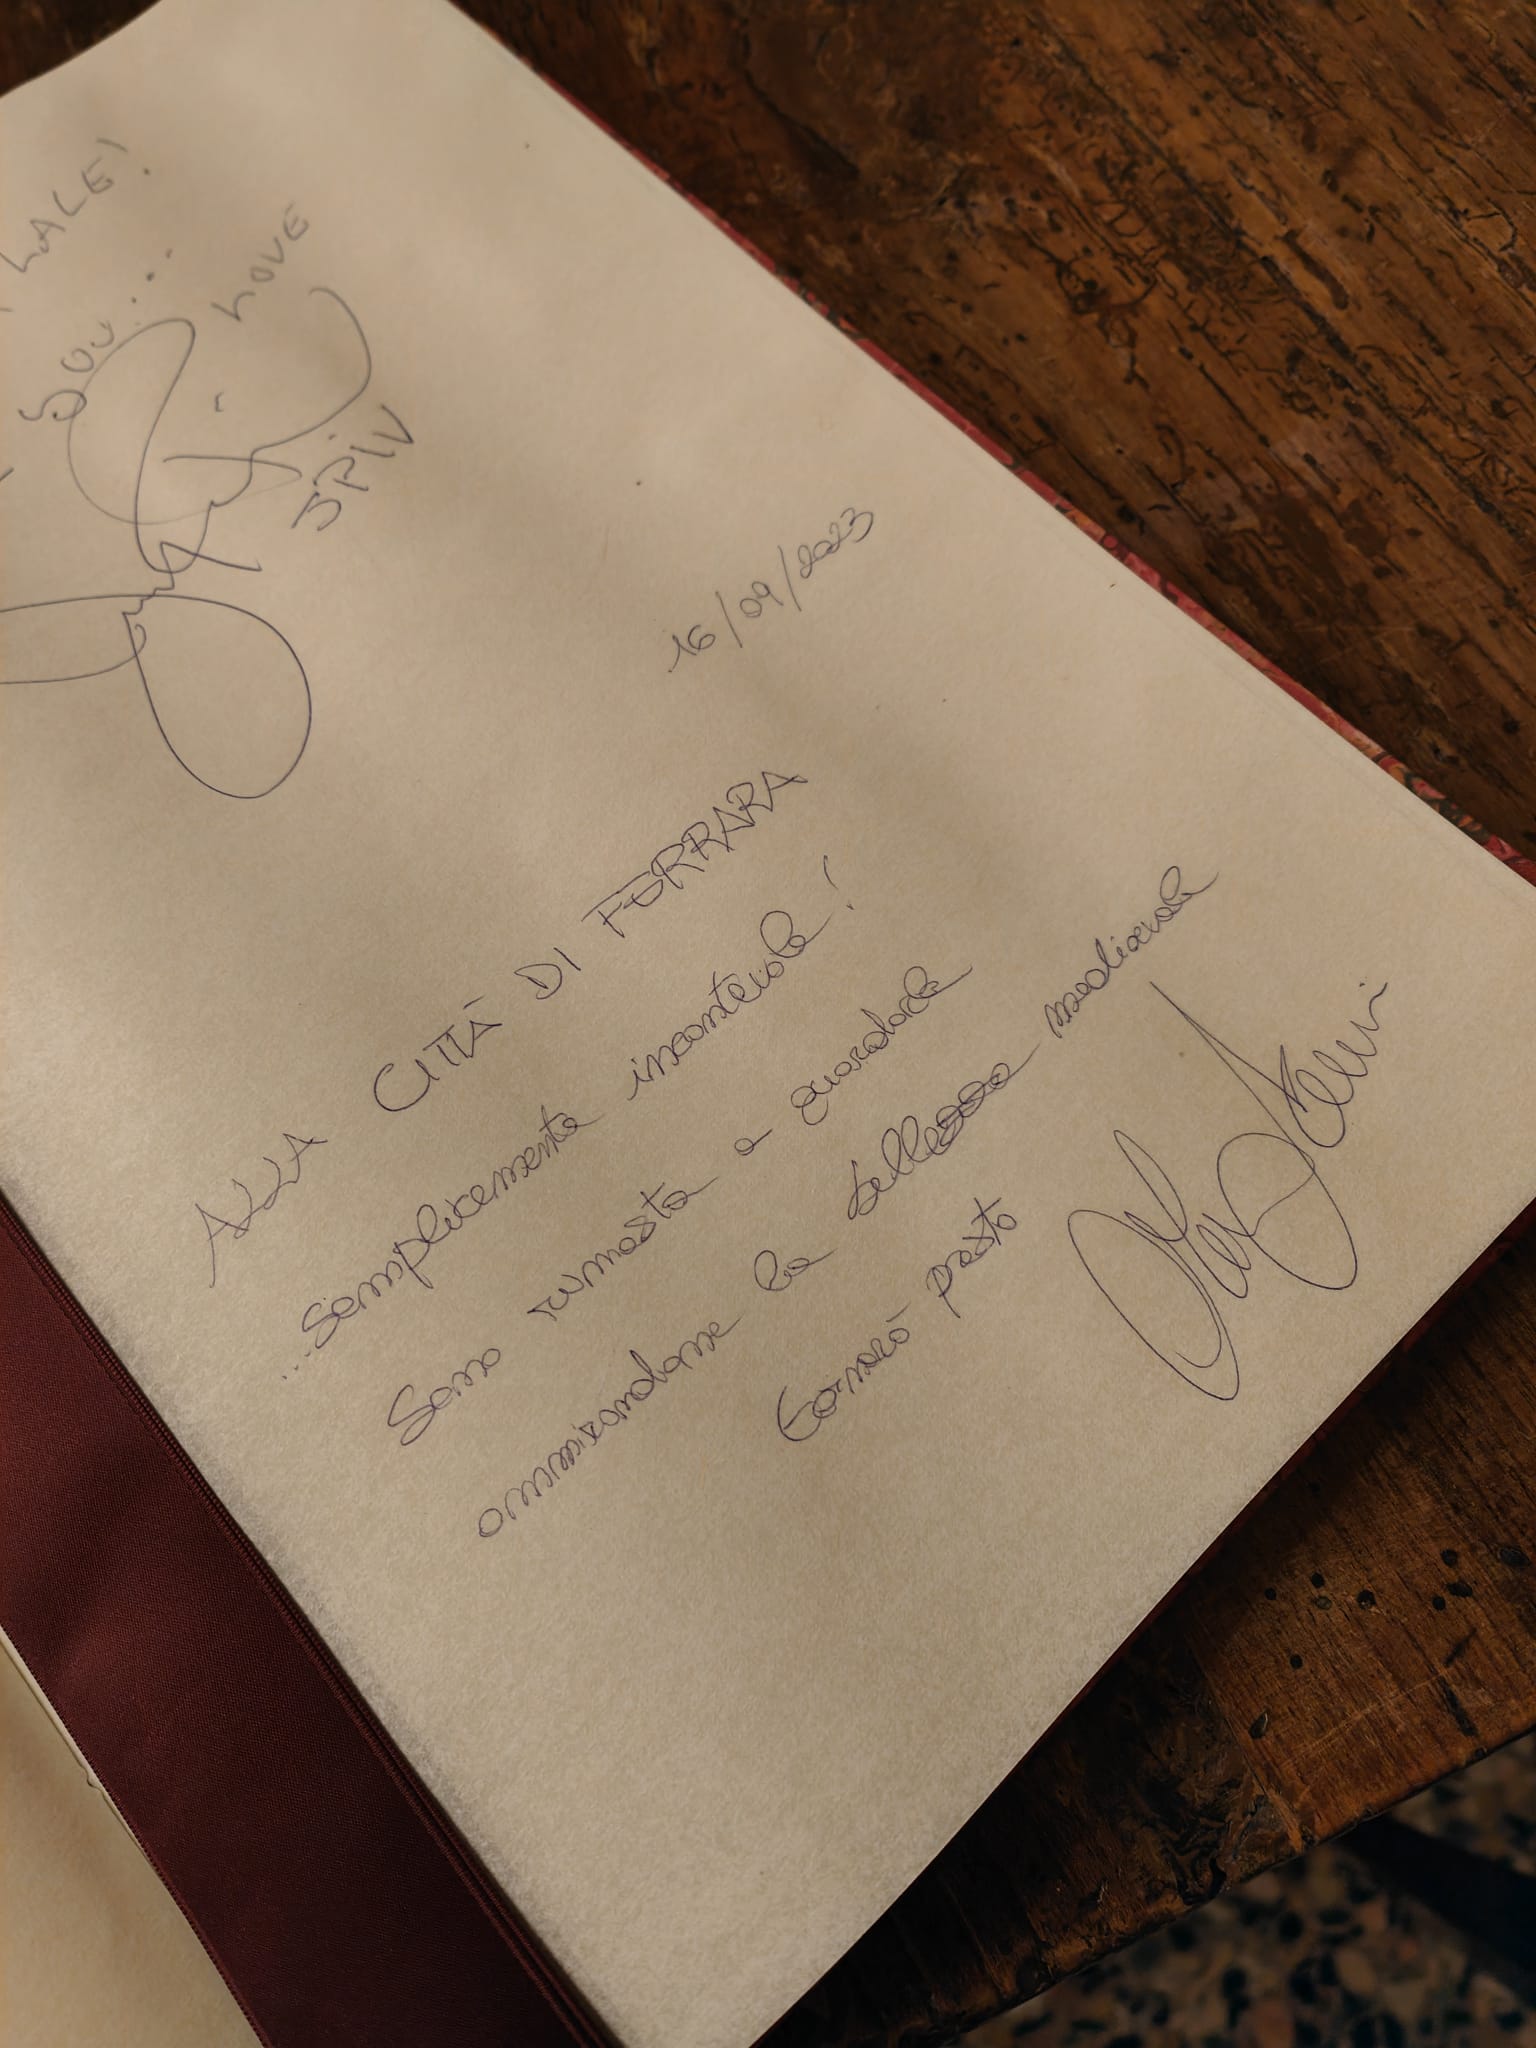 MALE!
YOU...
LOVE
SPIV
16/09/2023
ALLA CITTÀ DI FERRARA
...semplicemente incantevole!
Sono rimasta a guardarla
ammirandone la bellezza medievale
tornerò presto